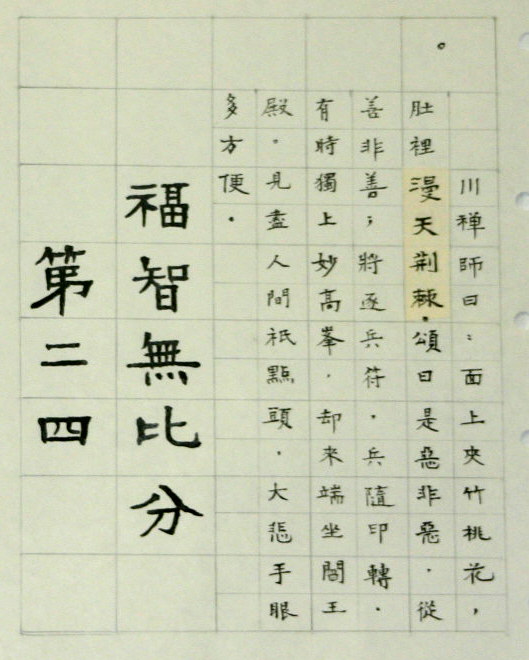 川禅師曰：面上夾竹桃花，
肚裡漫天荆棘．頌曰是惡非惡．從
善非善；將逐兵符．兵隨印轉．
有時獨上妙高峯．却来端坐閻王
殿。見盡人間祇點頭．大悲手眼
多方便．
福智無比分
第二四